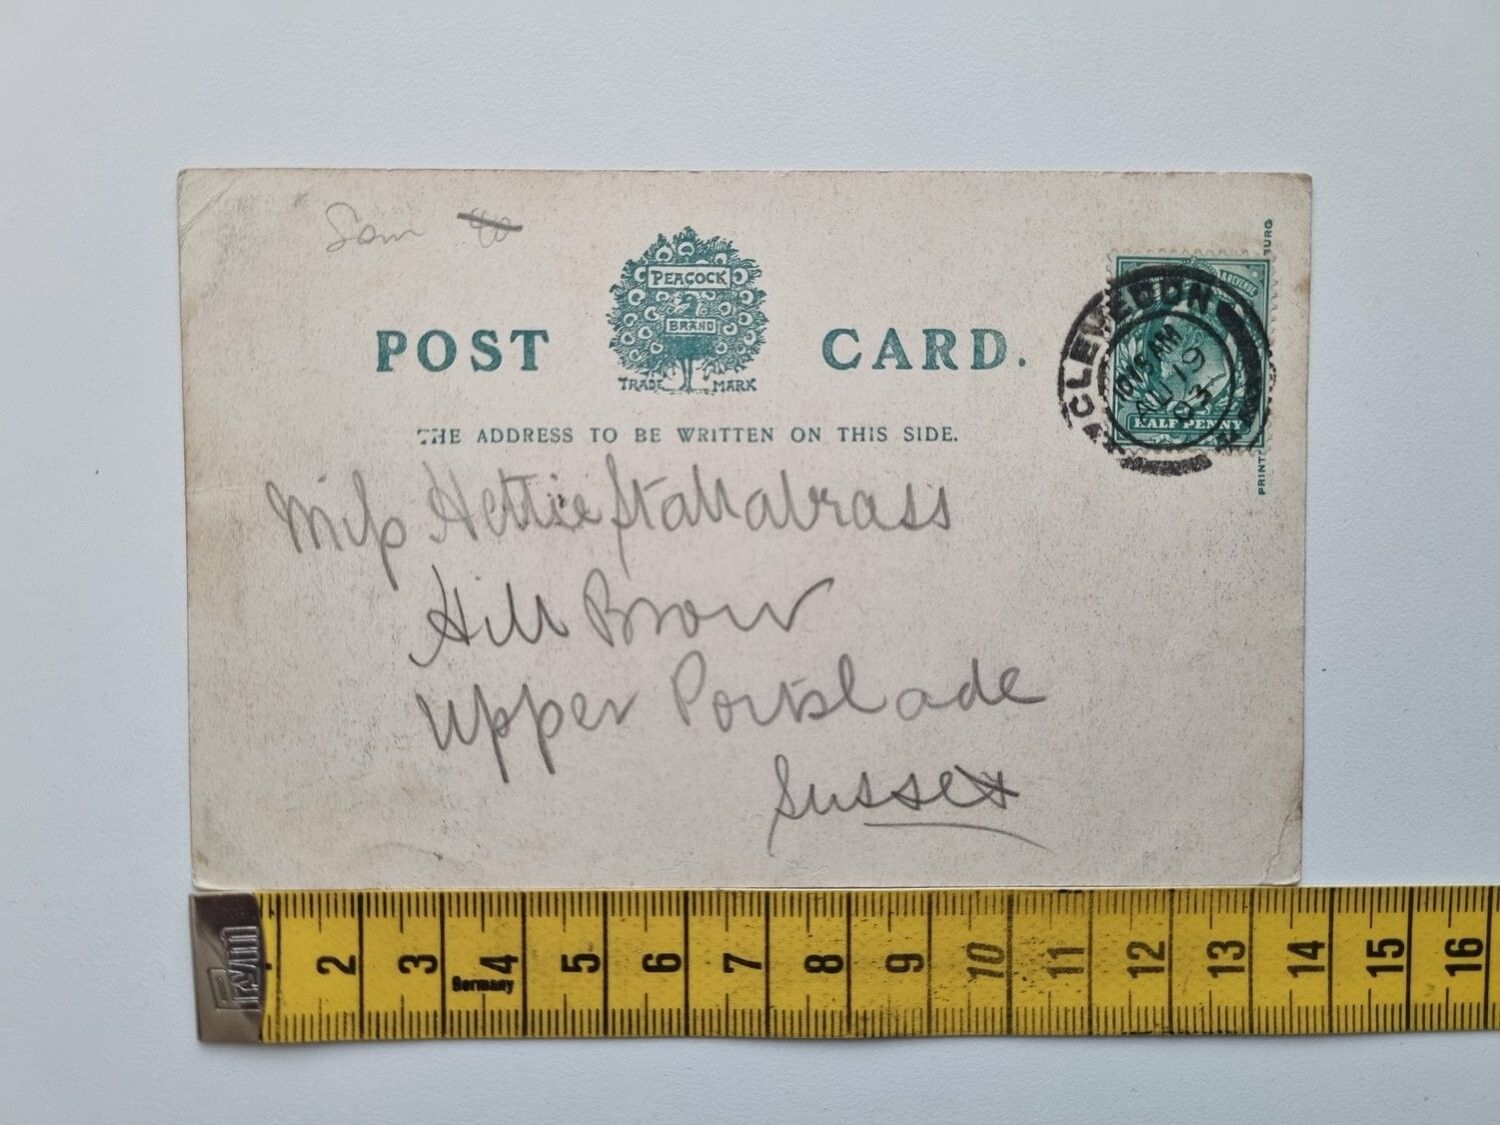 Som 40
PEACOCK
BRAND
TRADE MARK
POST CARD.
THE ADDRESS TO BE WRITTEN ON THIS SIDE.
& REVENUE
HALF PENNY
CLEVEDON
1015 AM
AU 19
03
PRINT
BURG
Miss Hettie Stallabrass
Hill Brow
Upper Portslade
Sussex
Prym
2 3 4 5 6 7 8 9 10 11 12 13 14 15 16
Germany